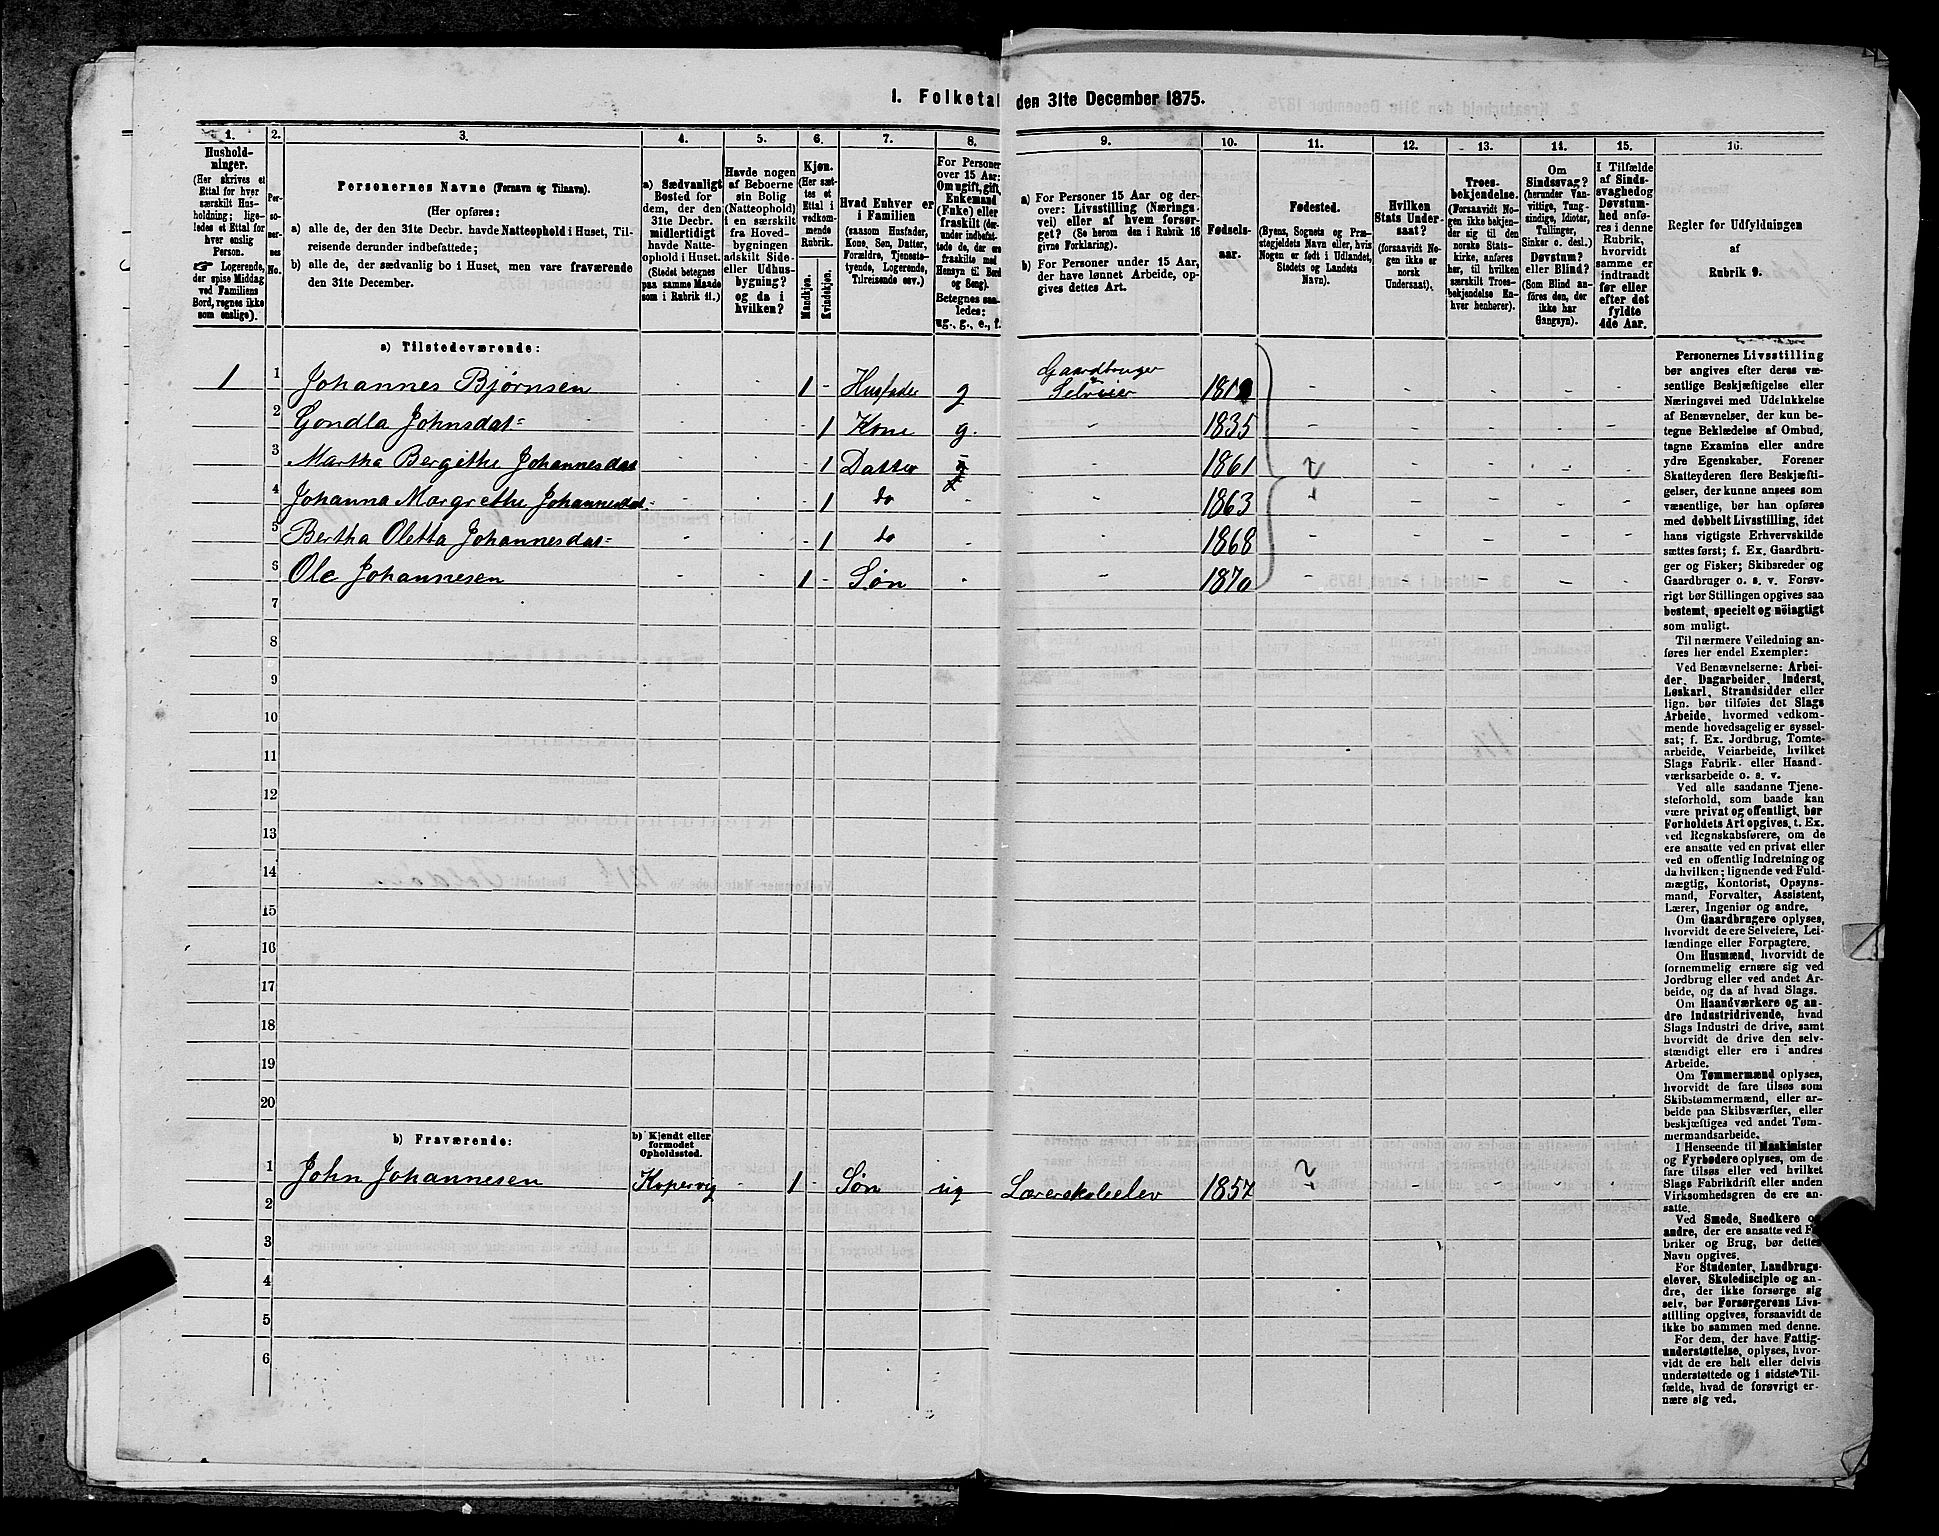 1. Folketal den 31te December 1875.
1. 2. 3. 4. 5. 6. 7. 8. 9. 10. 11. 12. 13. 14. 15. 16.
Hushold-
ninger.
(Her skrives et
Ettal for hver
særskilt Hus-
holdning; lige-
ledes et Ettal for
hver enslig
Person.
☞ Logerende,
der spise Middag
ved Familiens
Bord, regnes ikke
som enslige).
Per-
so-
ner-
nes
No.
Personernes Navne (Fornavn og Tilnavn).
(Her opføres:
a) alle de, der den 31te Decbr. havde Natteophold i Huset, Til-
reisende derunder indbefattede;
b) alle de, der sædvanlig bo i Huset, men vare fraværende
den 31te December.
a) Sædvanligt
Bosted for
dem, der den
31te Decbr.
midlertidigt
havde Natte-
ophold i Huset.
(Stedet betegnes
paa samme Maade
som i Rubrik 11.)
Havde nogen
af Beboerne
sin Bolig
(Natteophold)
i en særskilt
fra Hoved-
bygningen
adskilt Side-
eller Udhus-
bygning?
og da i
hvilken?
Kjøn.
(Her sæt-
tes et
Ettal i
vedkom-
mende
Rubrik.
Mandkjøn.
Kvindekjøn.
Hvad Enhver er
i Familien
(saasom Husfader,
Kone, Søn, Datter,
Forældre, Tjeneste-
tyende, Logerende,
Tilreisende osv.)
For Personer
over 15 Aar:
Om ugift, gift,
Enkemand
(Enke) eller
fraskilt (der-
under indbefat-
tede de, der ere
fraskilte med
Hensyn til Bord
og Seng).
Betegnes saa-
ledes:
ug., g., e., f.
a) For Personer 15 Aar og der-
over: Livsstilling (Nærings-
vei) eller af hvem forsør-
get? (Se herom den i Rubrik 16
givne Forklaring).
b) For Personer under 15 Aar,
der have lønnet Arbeide, op-
gives dettes Art.
Fødsels-
aar.
Fødested.
(Byens, Sognets og Præ-
stegjeldets Navn eller, hvis
Nogen er født i Udlandet,
Stedets og Landets
Navn).
Hvilken
Stats Under-
saat?
(forsaavidt No-
gen ikke er
norsk
Undersaat).
Troes-
bekjendelse.
(Forsaavidt No-
gen ikke bekjen-
der sig til den
norske Stats-
kirke, anføres
her, til hvilken
særskilt Troes-
bekjendelse En-
hver henhører).
Om
Sindssvag?
(herunder Van-
vittige, Tung-
sindige, Idioter,
Tullinger,
Sinker o. desl.)
Døvstum?
eller Blind?
(Som Blind an-
føres den, der
ikke har
Gangsyn).
I Tilfælde
af Sinds-
svaghed og
Døvstum-
hed anfø-
res i denne
Rubrik,
hvorvidt
samme er
indtraadt
før eller
efter det
fyldte
4de Aar.
Regler for Udfyldningen
af
Rubrik 9.
a) Tilstedeværende:
1 1 Johannes Bjørnsen - - 1 - Husfader g Gaardbruger Selveier - - - - -
2 Gondla Johnsdat= - - 1 Kone g. - 1835 - - - - -
3 Martha Bergithe Johannesdat - - 1 Datter - 1861 - - - -
4 Johanna Margrethe Johannesdat= - - 1 do - 1863 - - - -
5 Bertha Oletta Johannesdat= - - 1 do - - 1868 - - - -
6 Ole Johannesen - - 1 - Søn - - 1870 - - - - -
7
8
9
10
11
12
13
14
15
16
17
18
19
20
b) Fraværende:
b) Kjendt eller
formodet
Opholdssted.
1 John Johannesen Kopervig - 1 - Søn ug Lærerskoleelev 1857 - - - -
2
3
4
5
6
Personernes Livsstilling
bør angives efter deres væ-
sentlige Beskjæftigelse eller
Næringsvei med Udelukkelse
af Benævnelser, der kun be-
tegne Beklædelse af Ombud,
tagne Examina eller andre
ydre Egenskaber. Forener
Skatteyderen flere Beskjæfti-
gelser, der kunne ansees som
væsentlige, bør han opføres
med dobbelt Livsstilling, idet
hans vigtigste Erhvervskilde
sættes først; f. Ex. Gaardbru-
ger og Fisker; Skibsreder og
Gaardbruger o. s. v. Forøv-
rigt bør Stillingen opgives saa
bestemt, specielt og nöiagtigt
som muligt.
Til nærmere Veiledning an-
føres her endel Exempler:
Ved Benævnelserne: Arbei-
der, Dagarbeider, Inderst,
Løskarl, Strandsidder eller
lign. bør tilføies det Slags
Arbeide, hvormed vedkom-
mende hovedsagelig er syssel-
sat; f. Ex. Jordbrug, Tomte-
arbeide, Veiarbeide, hvilket
Slags Fabrik- eller Haand-
værksarbeide o. s. v.
Ved alle saadanne Tjene-
steforhold, som baade kan
være privat og offentligt, bør
Forholdets Art opgives, t. Ex.
ved Regnskabsførere, om de
ere ansatte ved en privat eller
ved en offentlig Indretning og
da hvilken; lignende ved Fuld-
mægtig, Kontorist, Opsyns-
mand, Forvalter, Assistent,
Lærer, Ingeniør og andre.
Om Gaardbrugere oplyses,
hvorvidt de ere Selveiere, Lei-
lændinge eller Forpagtere.
Om Husmænd, hvorvidt de
fornemmelig ernære sig ved
Jordbrug eller ved andet Ar-
beide, og da af hvad Slags.
Om Haandværkere og an-
dre Industridrivende, hvad
Slags Industri de drive, samt
hvorvidt de drive den selv-
stændigt eller ere i andres
Arbeide.
Om Tømmermænd oplyses,
hvorvidt de fare tilsøs som
Skibstømmermænd, eller ar-
beide paa Skibsværfter, eller
beskjæftiges ved andet Tøm-
mermandsarbeide.
I Henseende til Maskinister
og Fyrbødere oplyses, om de
fare tilsøs eller ved hvilket
Slags Fabrikdrift eller anden
Virksomhedsgren de ere an-
satte.
Ved Smede, Snedkere og
andre, der ere ansatte ved Fa-
briker og Brug, bør dettes
Navn opgives.
For Studenter, Landbrugs-
elever, Skoledisciple og an-
dre, der ikke forsørge sig
selv, bør Forsørgerens Livs-
stilling opgives, forsaavidt de
ikke bo sammen med denne.
For dem, der have Fattig-
understøttelse, oplyses, hvor-
vidt de ere helt eller delvis
understøttede og i sidste Til-
fælde, hvad de forøvrigt er-
nære sig ved.